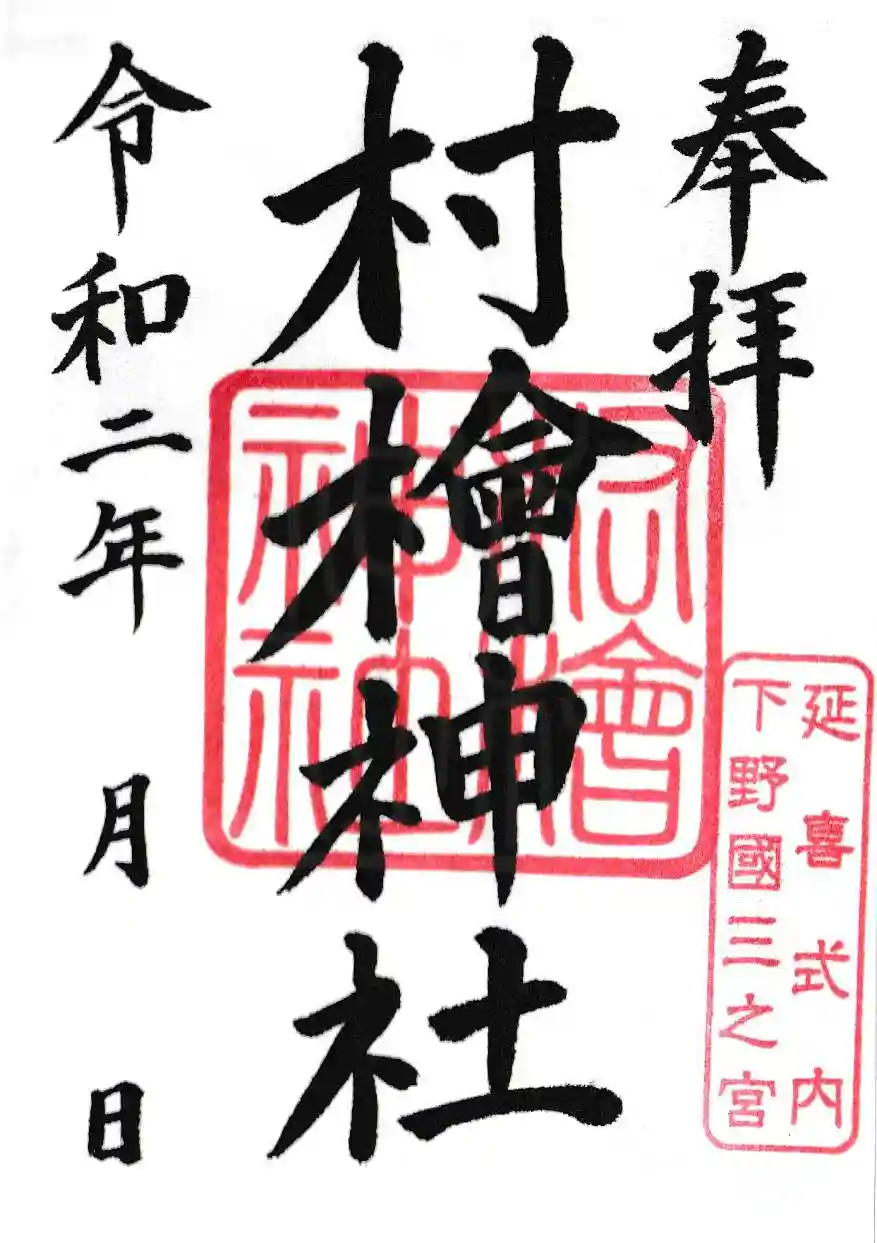 奉拝
延喜式内
下野國三之宮
村檜神社
檜
神社
令和二年 月 日